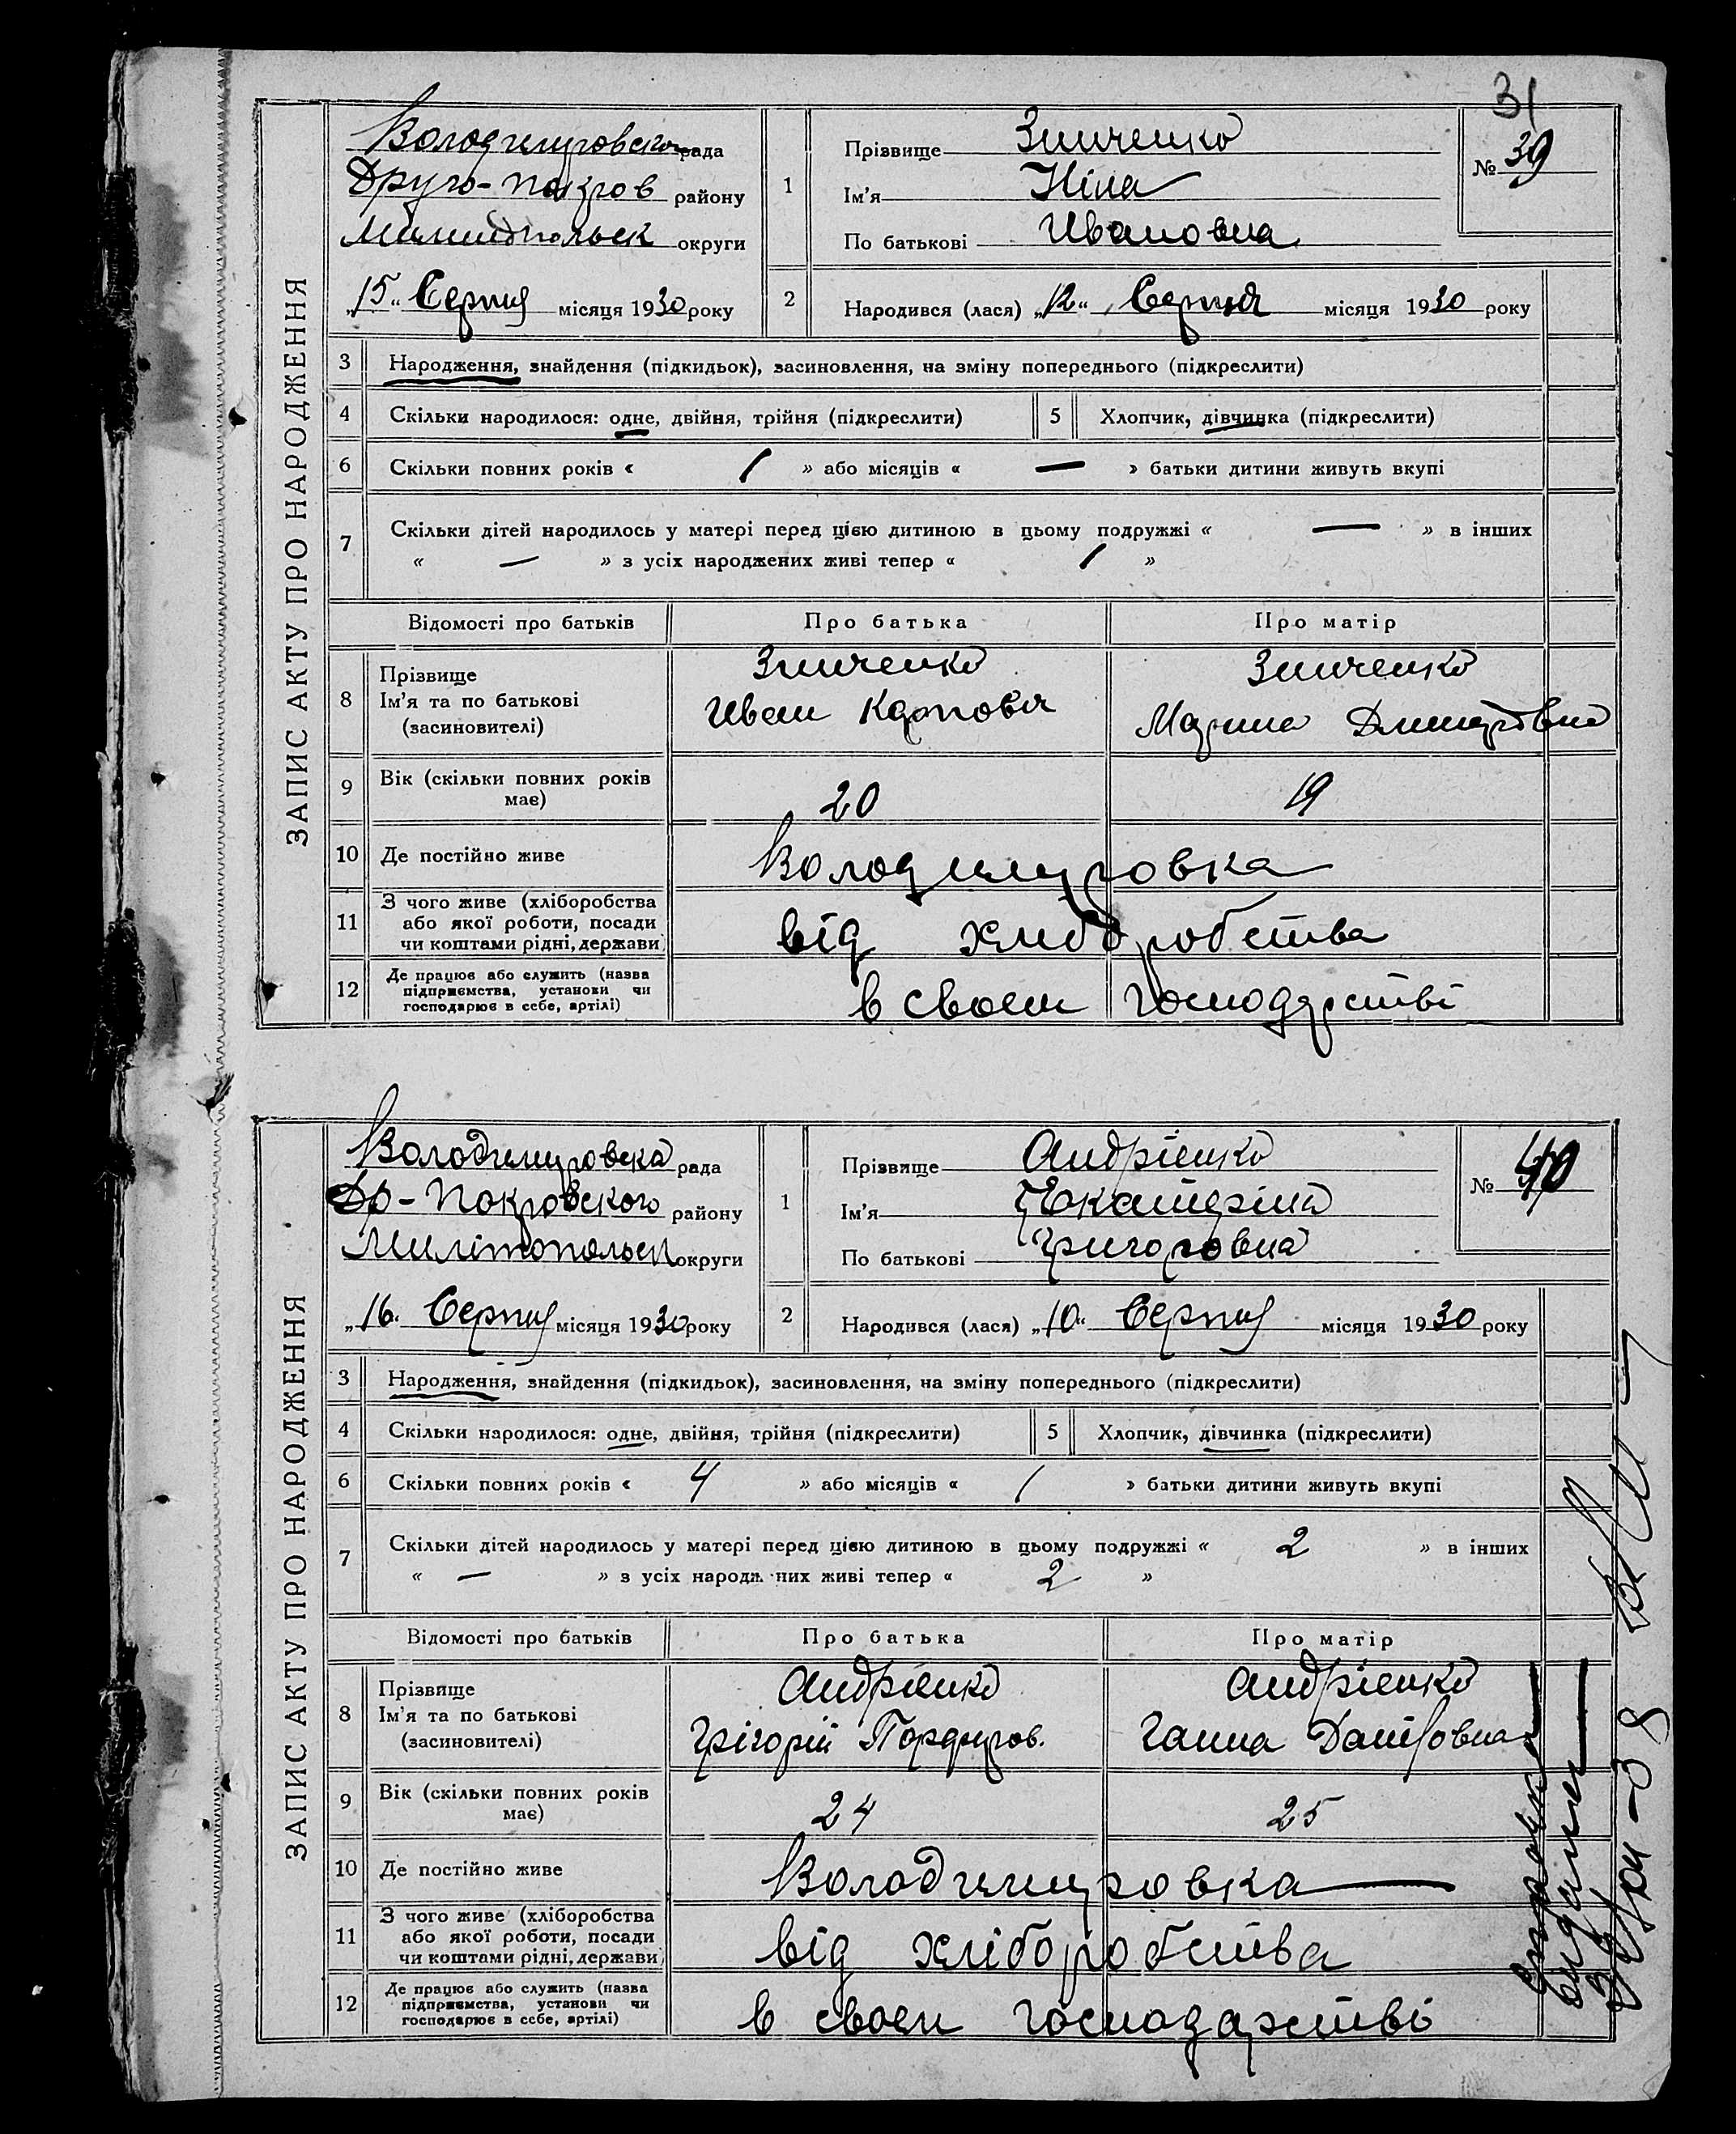 31
ЗАПИС АКТУ ПРО НАРОДЖЕННЯ
Володимировского рада
Друго-покров району
Милитопольск округи
„15“ Серпня місяця 1930 року
1
Прізвище Зинченко
Ім'я Ніна
По батькові Ивановна
№ 39
2
Народився (лася) „12“ Серпня місяця 1930 року
3 Народження, знайдення (підкидьок), засиновлення, на зміну попереднього (підкреслити)
4 Скільки народилося: одне, двійня, трійня (підкреслити) 5 Хлопчик, дівчинка (підкреслити)
6 Скільки повних років « / » або місяців « — » батьки дитини живуть вкупі
7 Скільки дітей народилось у матері перед цією дитиною в цьому подружжі « — » в інших
« — » з усіх народжених живі тепер « / »
Відомості про батьків Про батька Про матір
8 Прізвище
Ім'я та по батькові
(засиновителі)
Зинченко
Иван Карпович
Зинченко
Марина Дмитровна
9 Вік (скільки повних років
має)
20 19
10 Де постійно живе Володимировка
11 З чого живе (хліборобства
або якої роботи, посади
чи коштами рідні, держави)
від хлиборобства
12 Де працює або служить (назва
підприємства, установи чи
господарює в себе, артілі)
в своем господарстві
ЗАПИС АКТУ ПРО НАРОДЖЕННЯ
Володимировска рада
Др-Покровского району
Милітопольск округи
„16“ Серпня місяця 1930 року
1
Прізвище Андрієнко
Ім'я Екатеріна
По батькові Григоровна
№ 40
2
Народився (лася) „10“ Серпня місяця 1930 року
3 Народження, знайдення (підкидьок), засиновлення, на зміну попереднього (підкреслити)
4 Скільки народилося: одне, двійня, трійня (підкреслити) 5 Хлопчик, дівчинка (підкреслити)
6 Скільки повних років « 4 » або місяців « / » батьки дитини живуть вкупі
7 Скільки дітей народилось у матері перед цією дитиною в цьому подружжі « 2 » в інших
« — » з усіх народж них живі тепер « 2 »
Відомості про батьків Про батька Про матір
8 Прізвище
Ім'я та по батькові
(засиновителі)
Андрієнко
Грігорій
Андрієнко
Ганна Даниловна
9 Вік (скільки повних років
має)
24 25
10 Де постійно живе Володимировка
11 З чого живе (хліборобства
або якої роботи, посади
чи коштами рідні, держави)
від хліборобства
12 Де працює або служить (назва
підприємства, установи чи
господарює в себе, артілі)
в своем господарстві